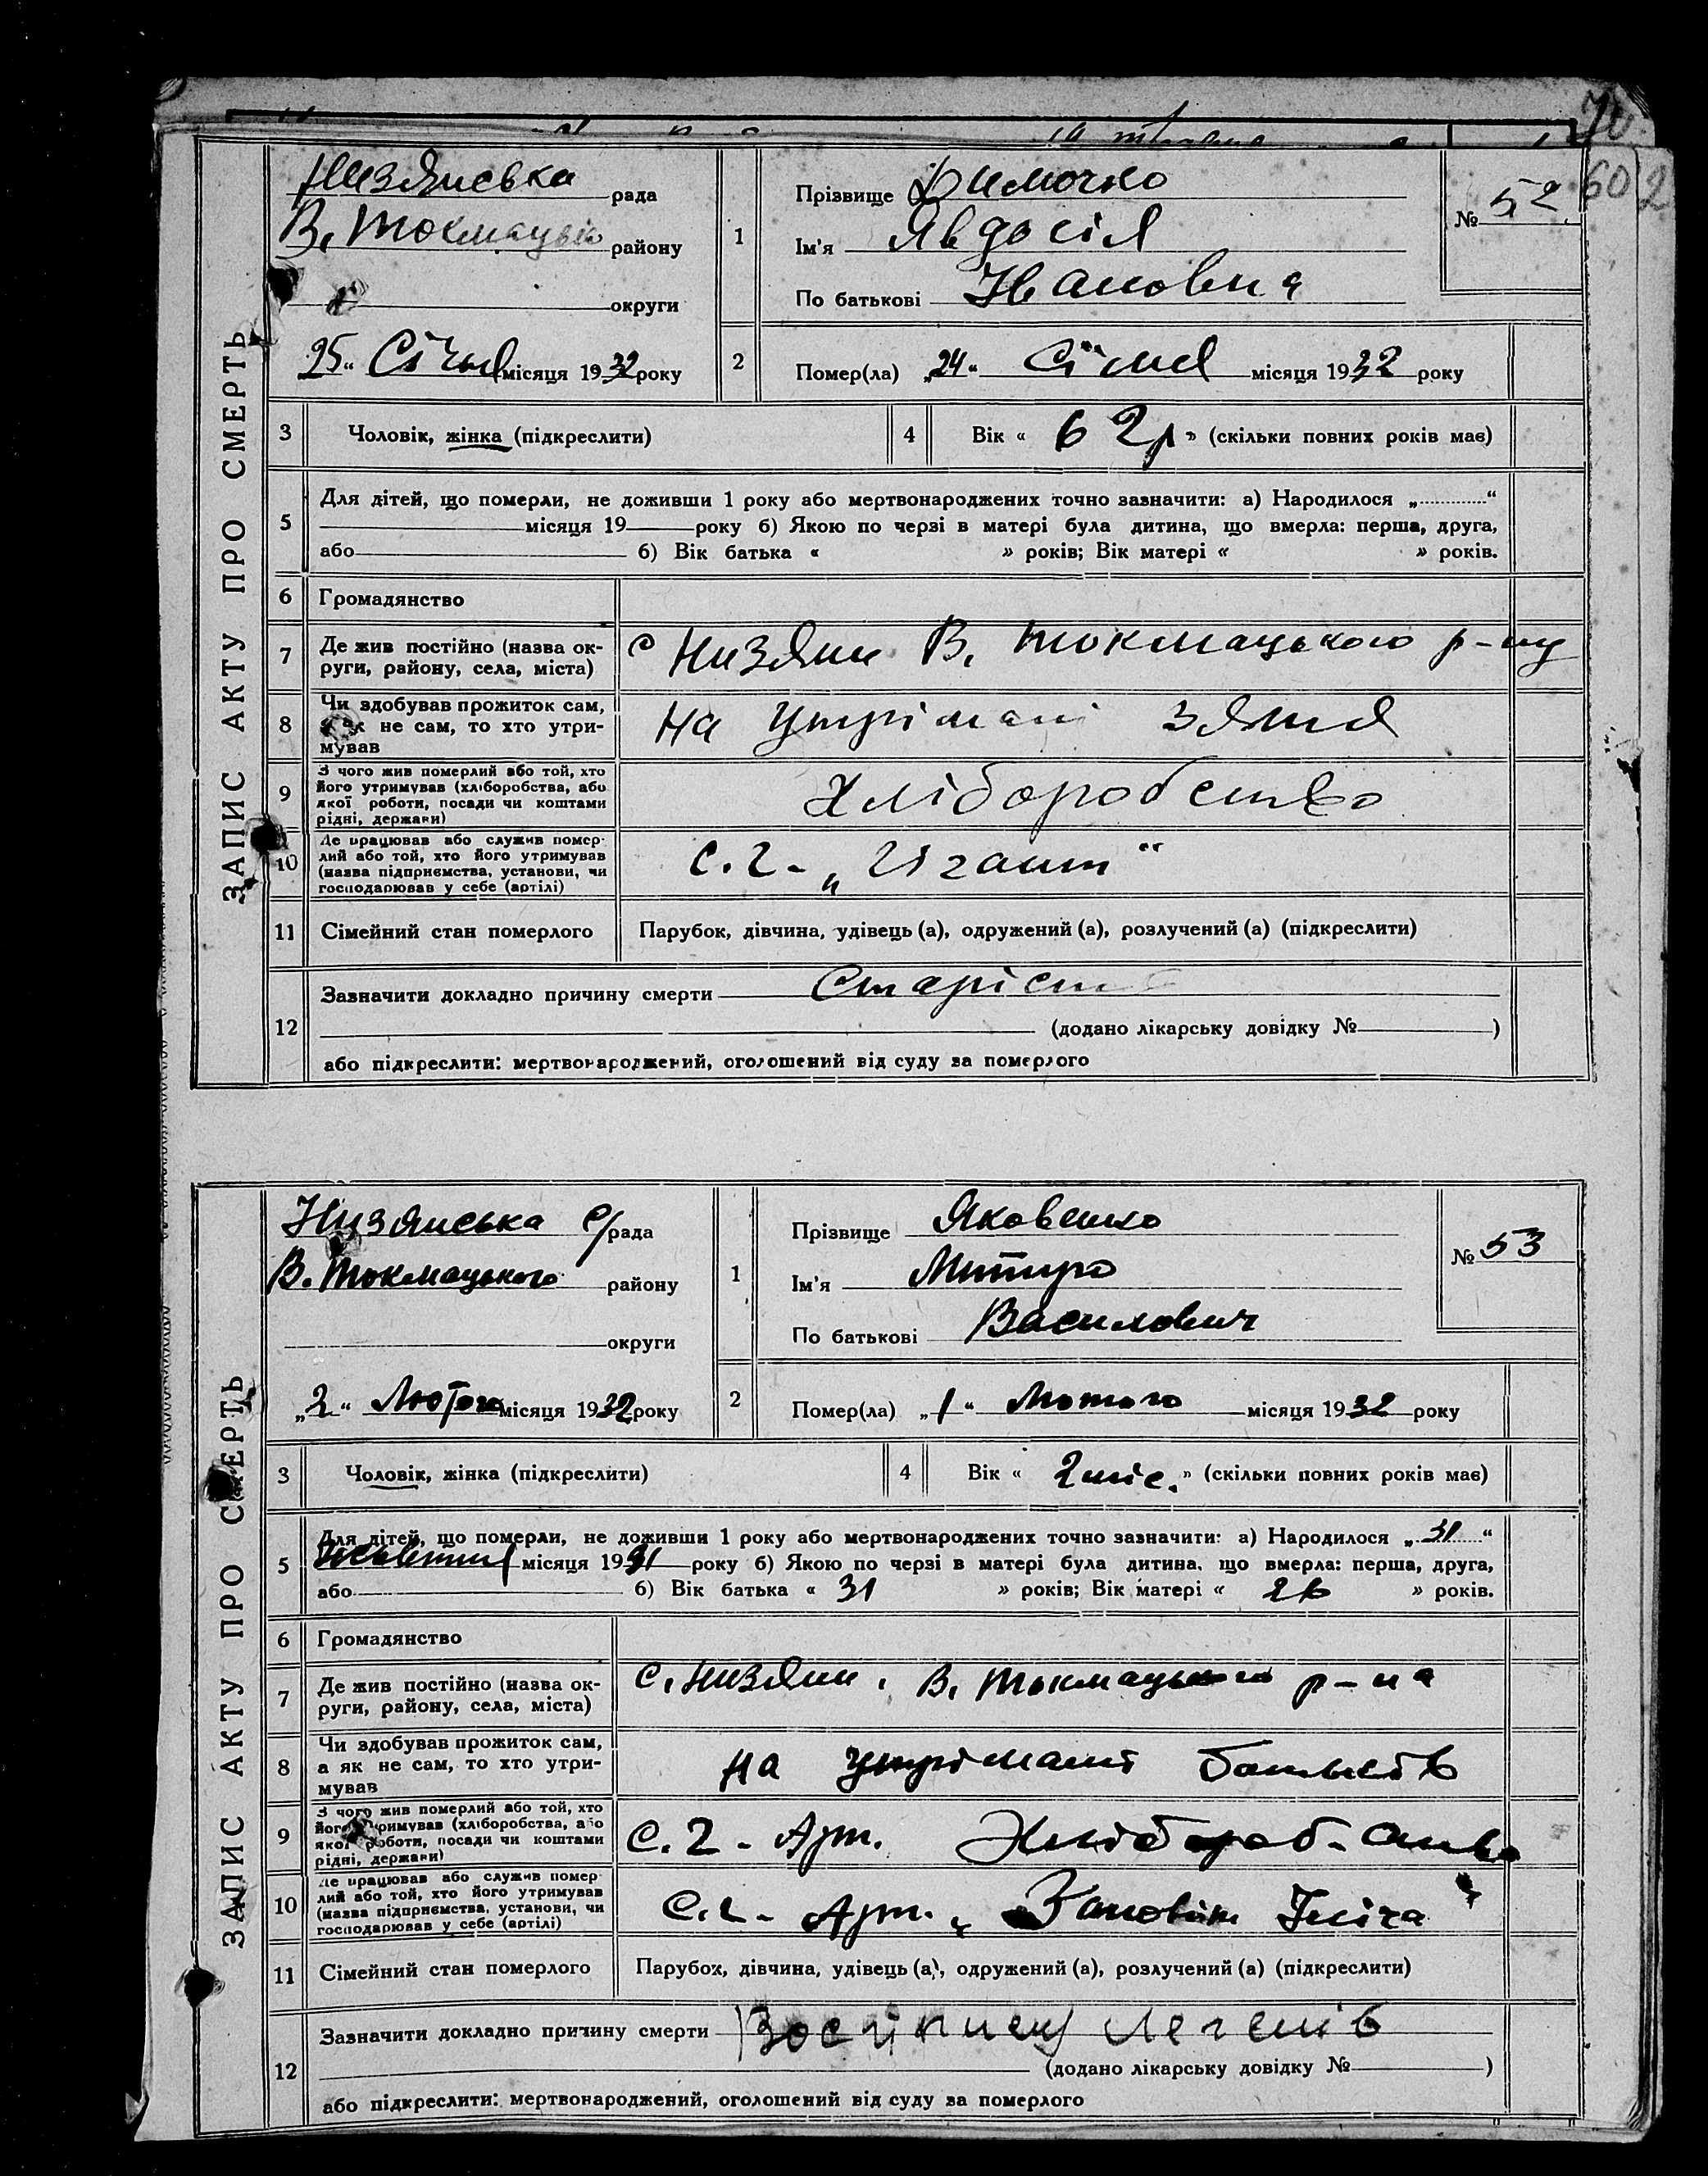 602
Низянська рада
В. Токмацько району
округи
25 “ Січня місяця 1932 року
ЗАПИС АКТУ ПРО СМЕРТЬ
1
Прізвище Димочко
Ім'я Явдосія
По батькові Ивановна
№ 52
2
Помер(ла) „24“ Січня місяця 1932 року
3
Чоловік, жінка (підкреслити)
4
Вік « 62р » (скільки повних років має)
5
Для дітей, що померли, не доживши 1 року або мертвонароджених точно зазначити: а) Народилося „ “
місяця 19 року б) Якою по черзі в матері була дитина, що вмерла: перша, друга,
або б) Вік батька « » років; Вік матері « » років.
6
Громадянство
7
Де жив постійно (назва ок-
руги, району, села, міста)
с Низяни В. Токмацького р-ну
8
Чи здобував прожиток сам,
а як не сам, то хто утри-
мував
на утрімані зятя
9
З чого жив померлий або той, хто
його утримував (хліборобства, або
якої роботи, посади чи коштами
рідні, держави)
Хліборобство
10
Де працював або служив помер-
лий або той, хто його утримував
(назва підприємства, установи, чи
господарював у себе (артілі)
с.г-„Гігант“
11
Сімейний стан померлого
Парубок, дівчина, удівець (а), одружений (а), розлучений (а) (підкреслити)
12
Зазначити докладно причину смерти Старість
(додано лікарську довідку № )
або підкреслити: мертвонароджений, оголошений від суду за померлого
Низянська с/рада
В. Токмацького району
округи
„2“ Лютого місяця 1932 року
ЗАПИС АКТУ ПРО СМЕРТЬ
1
Прізвище Яковенко
Ім'я Митро
По батькові Василович
№ 53
2
Помер(ла) „1“ Лютого місяця 1932 року
3
Чоловік, жінка (підкреслити)
4
Вік « 2 міс. » (скільки повних років має)
5
Для дітей, що померли, не доживши 1 року або мертвонароджених точно зазначити: а) Народилося „31“
місяця 1931 року б) Якою по черзі в матері була дитина, що вмерла: перша, друга,
або б) Вік батька « 31 » років; Вік матері « 26 » років.
6
Громадянство
7
Де жив постійно (назва ок-
руги, району, села, міста)
с. Низяни, В. Токмацького р-на
8
Чи здобував прожиток сам,
а як не сам, то хто утри-
мував
на утріманні батьків
9
З чого жив померлий або той, хто
його утримував (хліборобства, або
якої роботи, посади чи коштами
рідні, держави)
с.г-Арт. Хлібороб-ство
10
Де працював або служив помер-
лий або той, хто його утримував
(назва підприємства, установи, чи
господарював у себе (артілі)
с.г-Арт. „Заповіт Ілліча“
11
Сімейний стан померлого
Парубок, дівчина, удівець (а), одружений (а), розлучений (а) (підкреслити)
12
Зазначити докладно причину смерти легенів
(додано лікарську довідку № )
або підкреслити: мертвонароджений, оголошений від суду за померлого